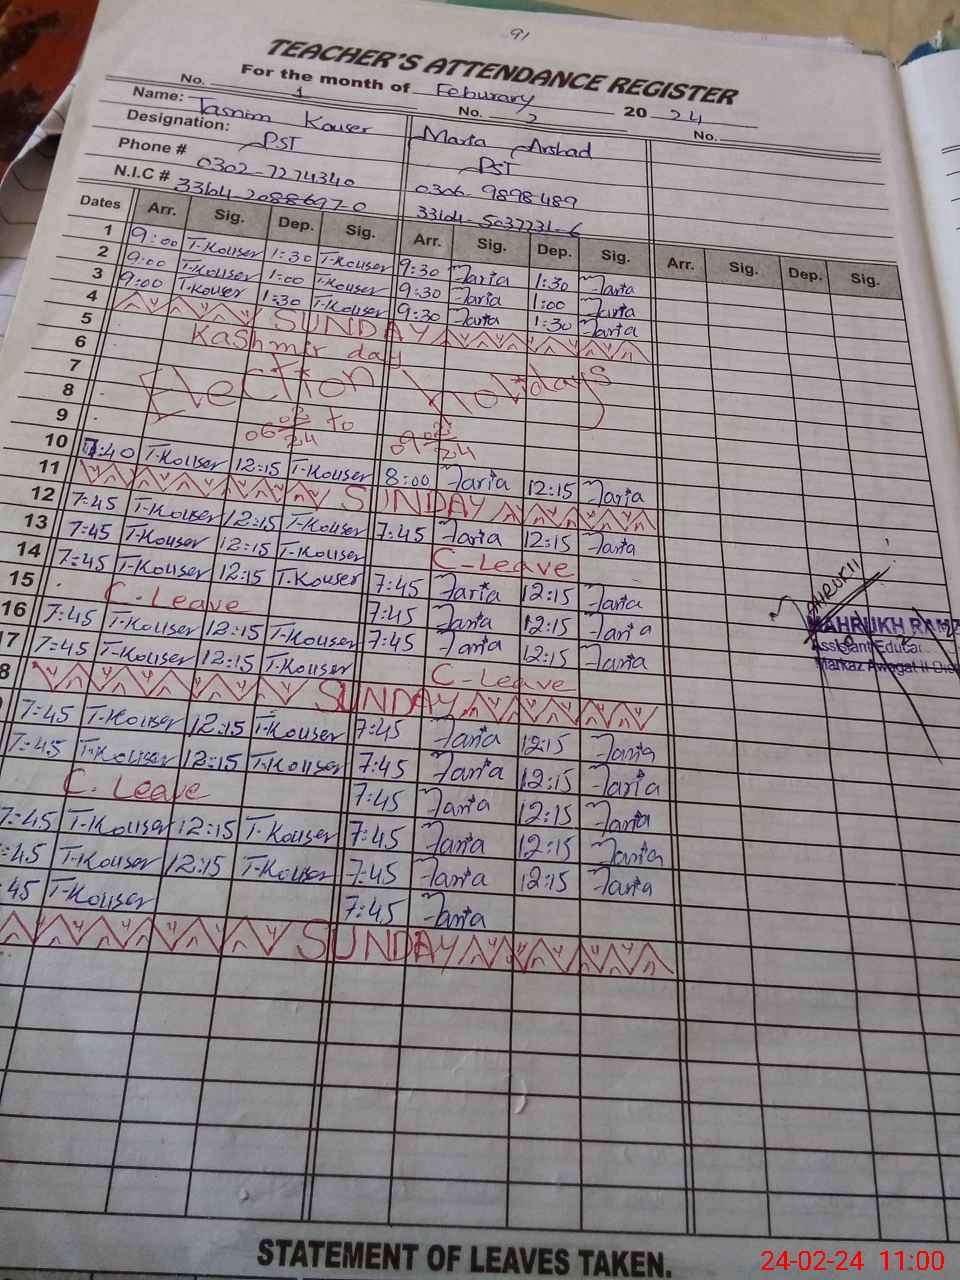 91
TEACHER'S ATTENDANCE REGISTER
For the month of Feburary 20 24
No. 1 No. 2 No.
Name: Tasnim Kouser Maria Arshad
Designation: PST PST
Phone # 0302-7274340 0306-9898489
N.I.C # 33104-2088697-0 33104-5037731-6
Dates Arr. Sig. Dep. Sig. Arr. Sig. Dep. Sig. Arr. Sig. Dep. Sig.
1 9:00 T-Kouser 1:30 T-Kouser 9:30 Maria 1:30 Maria
2 9:00 T-Kouser 1:00 T-Kouser 9:30 Maria 1:00 Maria
3 9:00 T-Kouser 1:30 T-Kouser 9:30 Maria 1:30 Maria
4 SUNDAY
5 Kashmir day
6
7 Election Holidays
8
9 06 02/24 to 09 02/24
10 7:40 T-Kouser 12:15 T-Kouser 8:00 Maria 12:15 Maria
11 SUNDAY
12 7:45 T-Kouser 12:15 T-Kouser 7:45 Maria 12:15 Maria
13 7:45 T-Kouser 12:15 T-Kouser C-Leave
14 7:45 T-Kouser 12:15 T-Kouser 7:45 Maria 12:15 Maria
15 C. Leave 7:45 Maria 12:15 Maria
16 7:45 T-Kouser 12:15 T-Kouser 7:45 Maria 12:15 Maria
17 7:45 T-Kouser 12:15 T-Kouser C-Leave
8 SUNDAY
7:45 T-Kouser 12:15 T-Kouser 7:45 Maria 12:15 Maria
7:45 T-Kouser 12:15 T-Kouser 7:45 Maria 12:15 Maria
C. Leave 7:45 Maria 12:15 Maria
7:45 T-Kouser 12:15 T-Kouser 7:45 Maria 12:15 Maria
:45 T-Kouser 12:15 T-Kouser 7:45 Maria 12:15 Maria
45 T-Kouser 7:45 Maria
SUNDAY
MAHRUKH RAMZ
Assistant Educa
Markaz Awagat II Dis
STATEMENT OF LEAVES TAKEN.
24-02-24 11:00